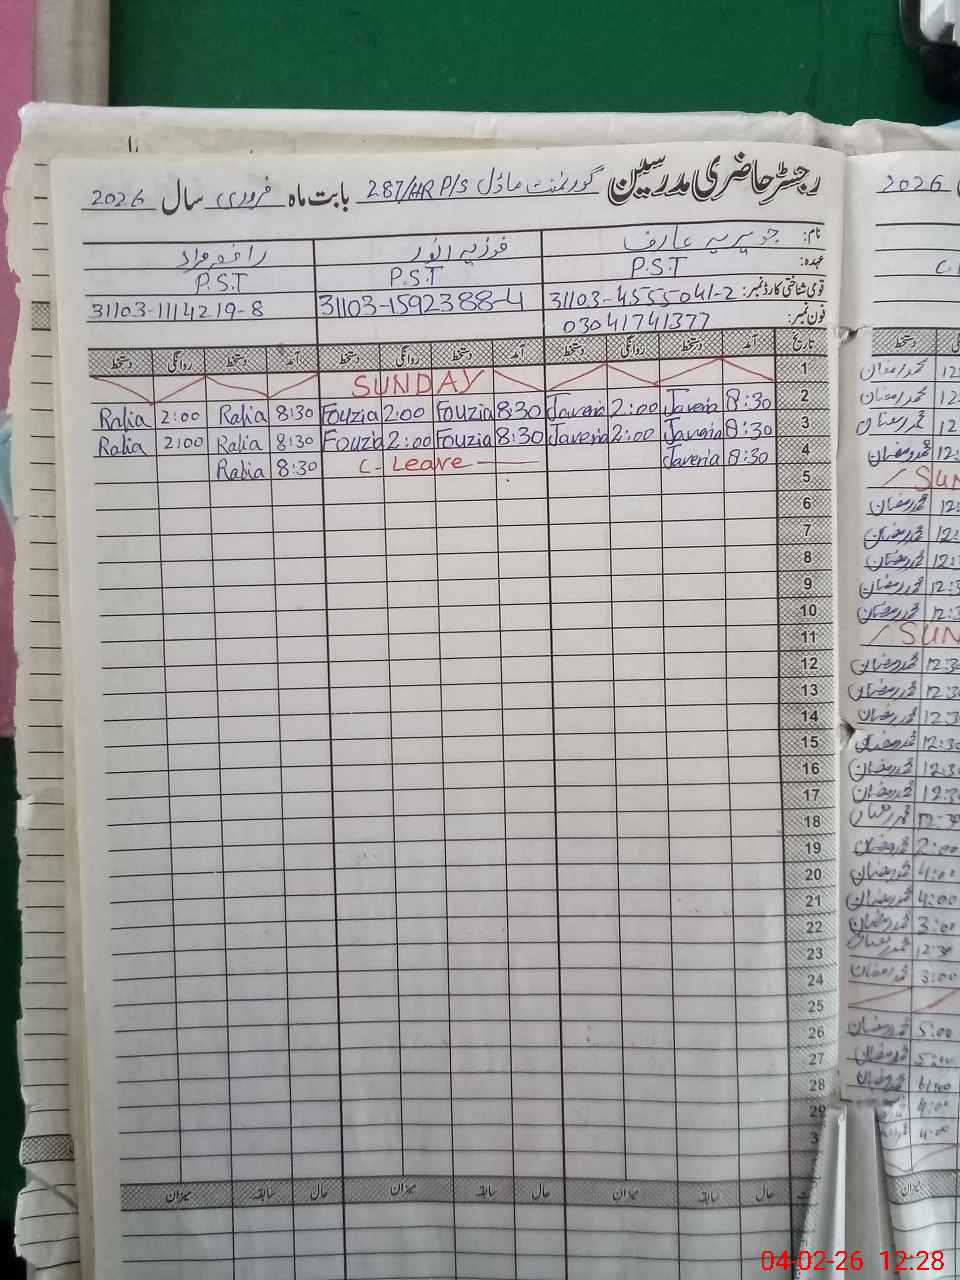 رجسٹر حاضری مدرسین گورنمنٹ ماڈل 287/HR P/S بابت ماہ فروری سال 2026
نام: جویریہ عارف فوزیہ انور
عہدہ: P.S.T P.S.T P.S.T
قومی شناختی کارڈ نمبر: 31103-4555041-2 31103-1592388-4 31103-1114219-8
فون نمبر: 03041741377
تاریخ آمد دستخط روانگی دستخط آمد دستخط روانگی دستخط آمد دستخط روانگی دستخط
1 SUNDAY
2 8:30 Javeria 2:00 Javeria 8:30 Fouzia 2:00 Fouzia 8:30 Rabia 2:00 Rabia
3 8:30 Javeria 2:00 Javeria 8:30 Fouzia 2:00 Fouzia 8:30 Rabia 2:00 Rabia
4 8:30 Javeria C-Leave 8:30 Rabia
5
6
7
8
9
10
11
12
13
14
15
16
17
18
19
20
21
22
23
24
25
26
27
28
29
حال سابقہ میزان حال سابقہ میزان حال سابقہ میزان
2026
دستخط
محمد رمضان
محمد رمضان
محمد رمضان
محمد رمضان
محمد رمضان
محمد رمضان
محمد رمضان
محمد رمضان
محمد رمضان
محمد رمضان 12:30
محمد رمضان 12:30
محمد رمضان 12:30
محمد رمضان 12:30
محمد رمضان 12:30
محمد رمضان 12:30
محمد رمضان 12:30
محمد رمضان 2:00
محمد رمضان 4:00
محمد رمضان 4:00
محمد رمضان 3:00
محمد رمضان 12:30
محمد رمضان 3:00
محمد رمضان 5:00
محمد رمضان 5:00
محمد رمضان
4:00
4:00
میزان
04-02-26 12:28